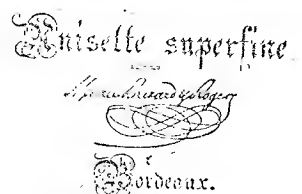 Anisette superfine
Marie Brizard & Roger
Bordeaux.